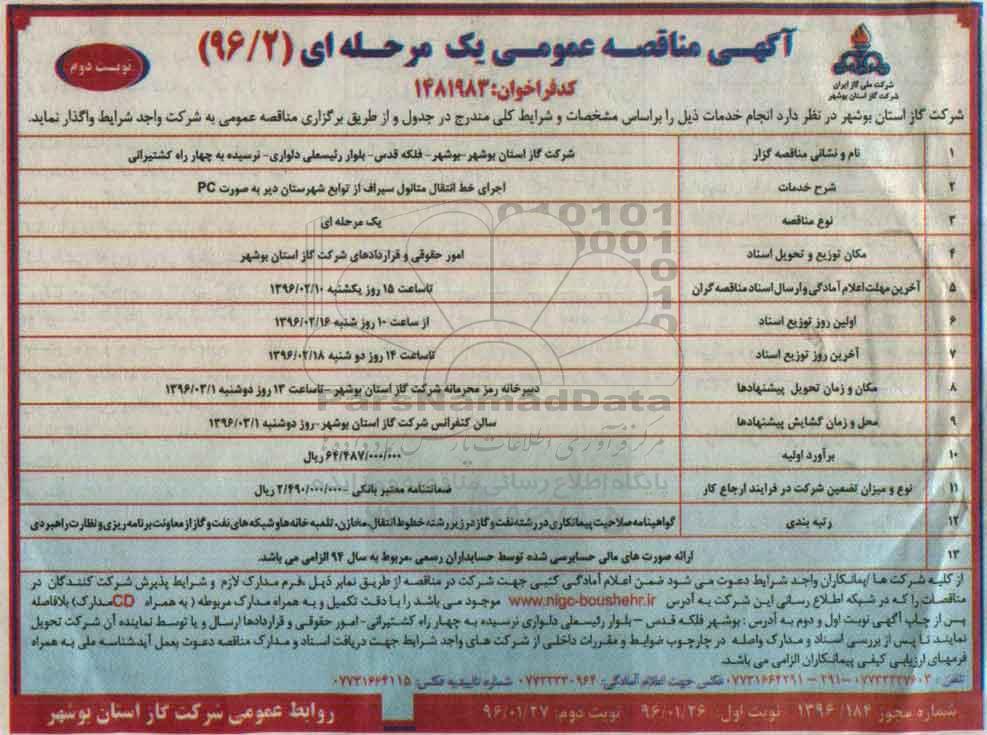 آگهی مناقصه عمومی یک مرحله ای (۹۶/۲)
نوبت دوم
شرکت ملی گاز ایران
شرکت گاز استان بوشهر
کدفراخوان:۱۴۸۱۹۸۳
شرکت گاز استان بوشهر در نظر دارد انجام خدمات ذیل را براساس مشخصات و شرایط کلی مندرج در جدول و از طریق برگزاری مناقصه عمومی به شرکت واجد شرایط واگذار نماید.
۱ نام و نشانی مناقصه گزار شرکت گاز استان بوشهر-بوشهر- فلکه قدس- بلوار رئیسعلی دلواری- نرسیده به چهار راه کشتیرانی
۲ شرح خدمات اجرای خط انتقال متانول سیراف از توابع شهرستان دیر به صورت PC
۳ نوع مناقصه یک مرحله ای
۴ مکان توزیع و تحویل اسناد امور حقوقی و قراردادهای شرکت گاز استان بوشهر
۵ آخرین مهلت اعلام آمادگی و ارسال اسناد مناقصه گران تاساعت ۱۵ روز یکشنبه ۱۳۹۶/۰۲/۱۰
۶ اولین روز توزیع اسناد از ساعت ۱۰ روز شنبه ۱۳۹۶/۰۲/۱۶
۷ آخرین روز توزیع اسناد تاساعت ۱۴ روز دو شنبه ۱۳۹۶/۰۲/۱۸
۸ مکان و زمان تحویل پیشنهادها دبیرخانه رمز محرمانه شرکت گاز استان بوشهر -تاساعت ۱۳ روز دوشنبه ۱۳۹۶/۰۳/۱
۹ محل و زمان گشایش پیشنهادها سالن کنفرانس شرکت گاز استان بوشهر-روز دوشنبه ۱۳۹۶/۰۳/۱
۱۰ برآورد اولیه ۶۴/۴۸۷/۰۰۰/۰۰۰ ریال
۱۱ نوع و میزان تضمین شرکت در فرایند ارجاع کار ضمانتنامه معتبر بانکی -۲/۴۹۰/۰۰۰/۰۰۰ ریال
۱۲ رتبه بندی گواهینامه صلاحیت پیمانکاری در رشته نفت و گاز در زیر رشته خطوط انتقال، مخازن، تلمبه خانه ها و شبکه های نفت و گاز از معاونت برنامه ریزی و نظارت راهبردی
۱۳ ارائه صورت های مالی حسابرسی شده توسط حسابداران رسمی مربوط به سال ۹۴ الزامی می باشد.
از کلیه شرکت ها /پیمانکاران واجد شرایط دعوت می شود ضمن اعلام آمادگی کتبی جهت شرکت در مناقصه از طریق نمابر ذیل ،فرم مدارک لازم و شرایط پذیرش شرکت کنندگان در
مناقصات را که در شبکه اطلاع رسانی این شرکت به آدرس www.nigc-boushehr.ir موجود می باشد را با دقت تکمیل و به همراه مدارک مربوطه ( به همراه CDمدارک) بلافاصله
پس از چاپ آگهی نوبت اول و دوم به آدرس : بوشهر فلکه قدس - بلوار رئیسعلی دلواری نرسیده به چهار راه کشتیرانی - امور حقوقی و قراردادها ارسال و یا توسط نماینده آن شرکت تحویل
نمایند تا پس از بررسی اسناد و مدارک واصله در چارچوب ضوابط و مقررات داخلی از شرکت های واجد شرایط جهت دریافت اسناد و مدارک مناقصه دعوت بعمل آید.شناسه ملی به همراه
فرمهای ارزیابی کیفی پیمانکاران الزامی می باشد.
تلفن : ۰۷۷۳۳۳۳۷۶۰۲-۲۹۱ - ۰۷۷۳۱۶۶۴۲۹۱ فکس جهت اعلام آمادگی: ۰۷۷۳۳۳۳۰۹۶۴ شماره تاییدیه فکس: ۰۷۷۳۱۶۶۴۱۱۵
شماره مجوز ۱۳۹۶/۱۸۴ نوبت اول: ۹۶/۰۱/۲۶ نوبت دوم: ۹۶/۰۱/۲۷ روابط عمومی شرکت گاز استان بوشهر
ParsNamadData